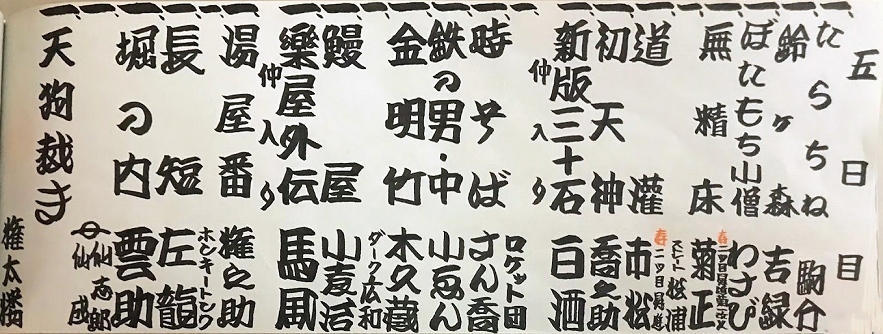 五日目
たらちね 駒介
鈴ヶ森 吉緑
ぼたもち小僧 わさび
無精床 菊正
ストレート松浦
道灌 市松
初天神 喬之助
新版三十石 白酒
仲入り
ロケット団
時そば さん喬
鉄の男・中 小ゑん
金明竹 木久蔵
ダーク広和
鰻屋 小麦治
樂屋外伝 馬風
仲入り
湯屋番 権之助
ホンキートンク
長短 左龍
堀の内 雲助
仙志郎
仙成
天狗裁き 権太樓